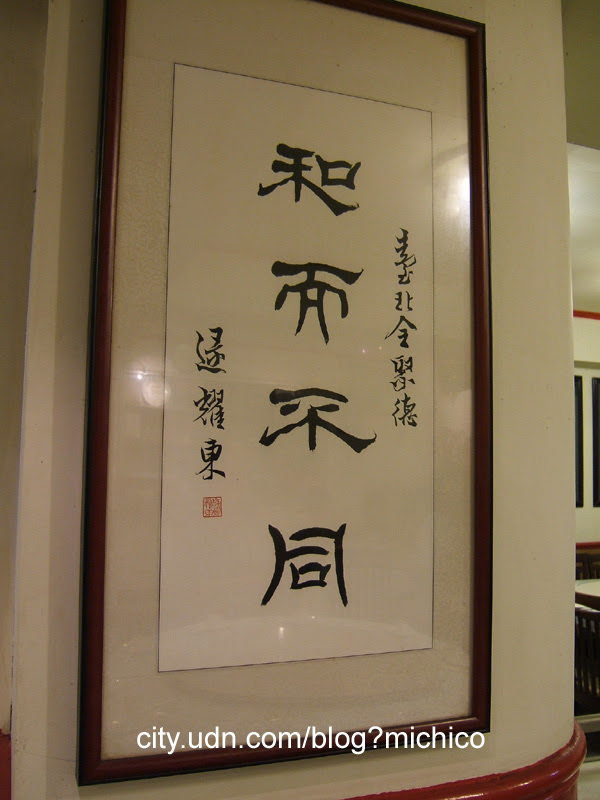 臺北全聚德
和而不同
逯耀東
city.udn.com/blog?michico